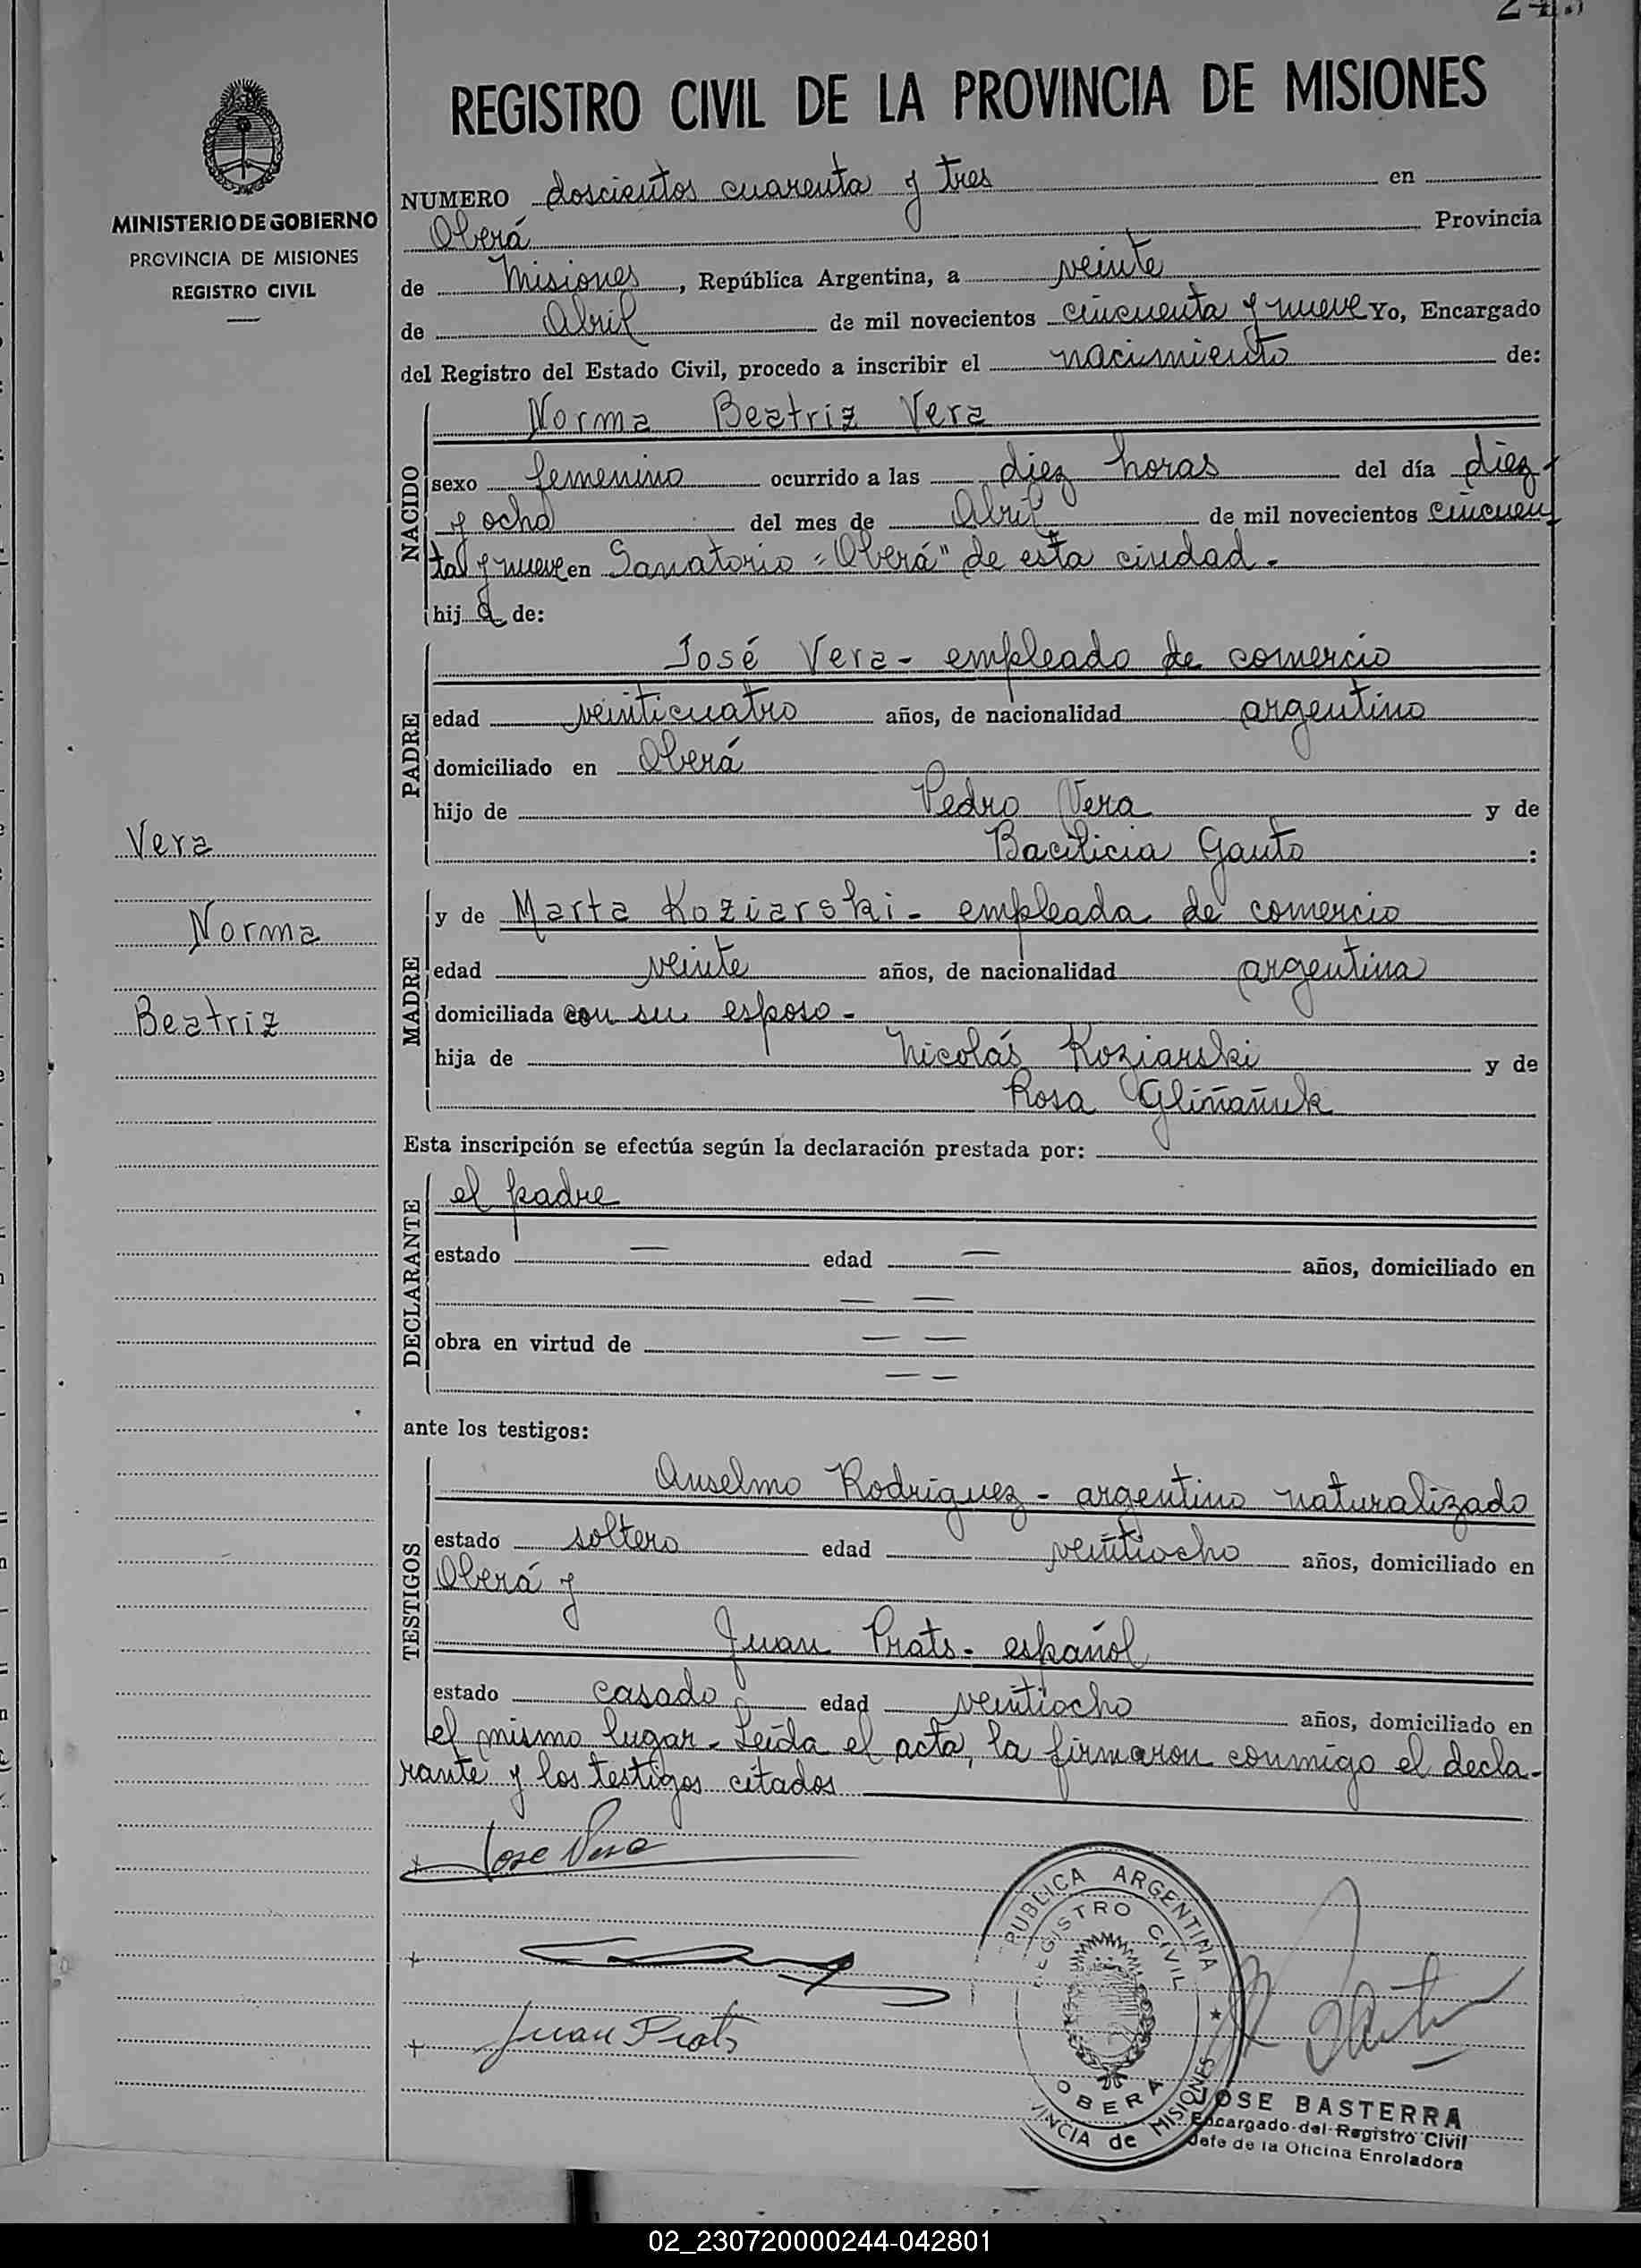 243
REGISTRO CIVIL DE LA PROVINCIA DE MISIONES
MINISTERIO DE GOBIERNO
PROVINCIA DE MISIONES
REGISTRO CIVIL
NUMERO doscientos cuarenta y tres en
Oberá Provincia
de Misiones, República Argentina, a veinte
de Abril de mil novecientos cincuenta y nueve Yo, Encargado
del Registro del Estado Civil, procedo a inscribir el nacimiento de:
NACIDO
Norma Beatriz Vera
sexo femenino ocurrido a las diez horas del día diez
y ocho del mes de Abril de mil novecientos cincuen
ta y nueve en Sanatorio "Oberá" de esta ciudad.-
hija de:
PADRE
José Vera - empleado de comercio
edad veinticuatro años, de nacionalidad argentino
domiciliado en Oberá
hijo de Pedro Vera y de
Bacilicia Gauto :
MADRE
y de Marta Koziarski - empleada de comercio
edad veinte años, de nacionalidad argentina
domiciliada con su esposo -
hija de Nicolás Koziarski y de
Rosa Gliñañuk
Vera
Norma
Beatriz
Esta inscripción se efectúa según la declaración prestada por:
DECLARANTE
el padre
estado — edad — años, domiciliado en
— —
obra en virtud de — —
— —
ante los testigos:
TESTIGOS
Anselmo Rodriguez - argentino naturalizado
estado soltero edad veintiocho años, domiciliado en
Oberá y
Juan Prats - español
estado casado edad veintiocho años, domiciliado en
el mismo lugar - Leída el acta, la firmaron conmigo el decla-
rante y los testigos citados
Jose Vera
Juan Prats
PUBLICA ARGENTINA
REGISTRO CIVIL
OBERA
VINCIA de MISIONES
JOSE BASTERRA
Encargado del Registro Civil
Jefe de la Oficina Enroladora
02_230720000244-042801